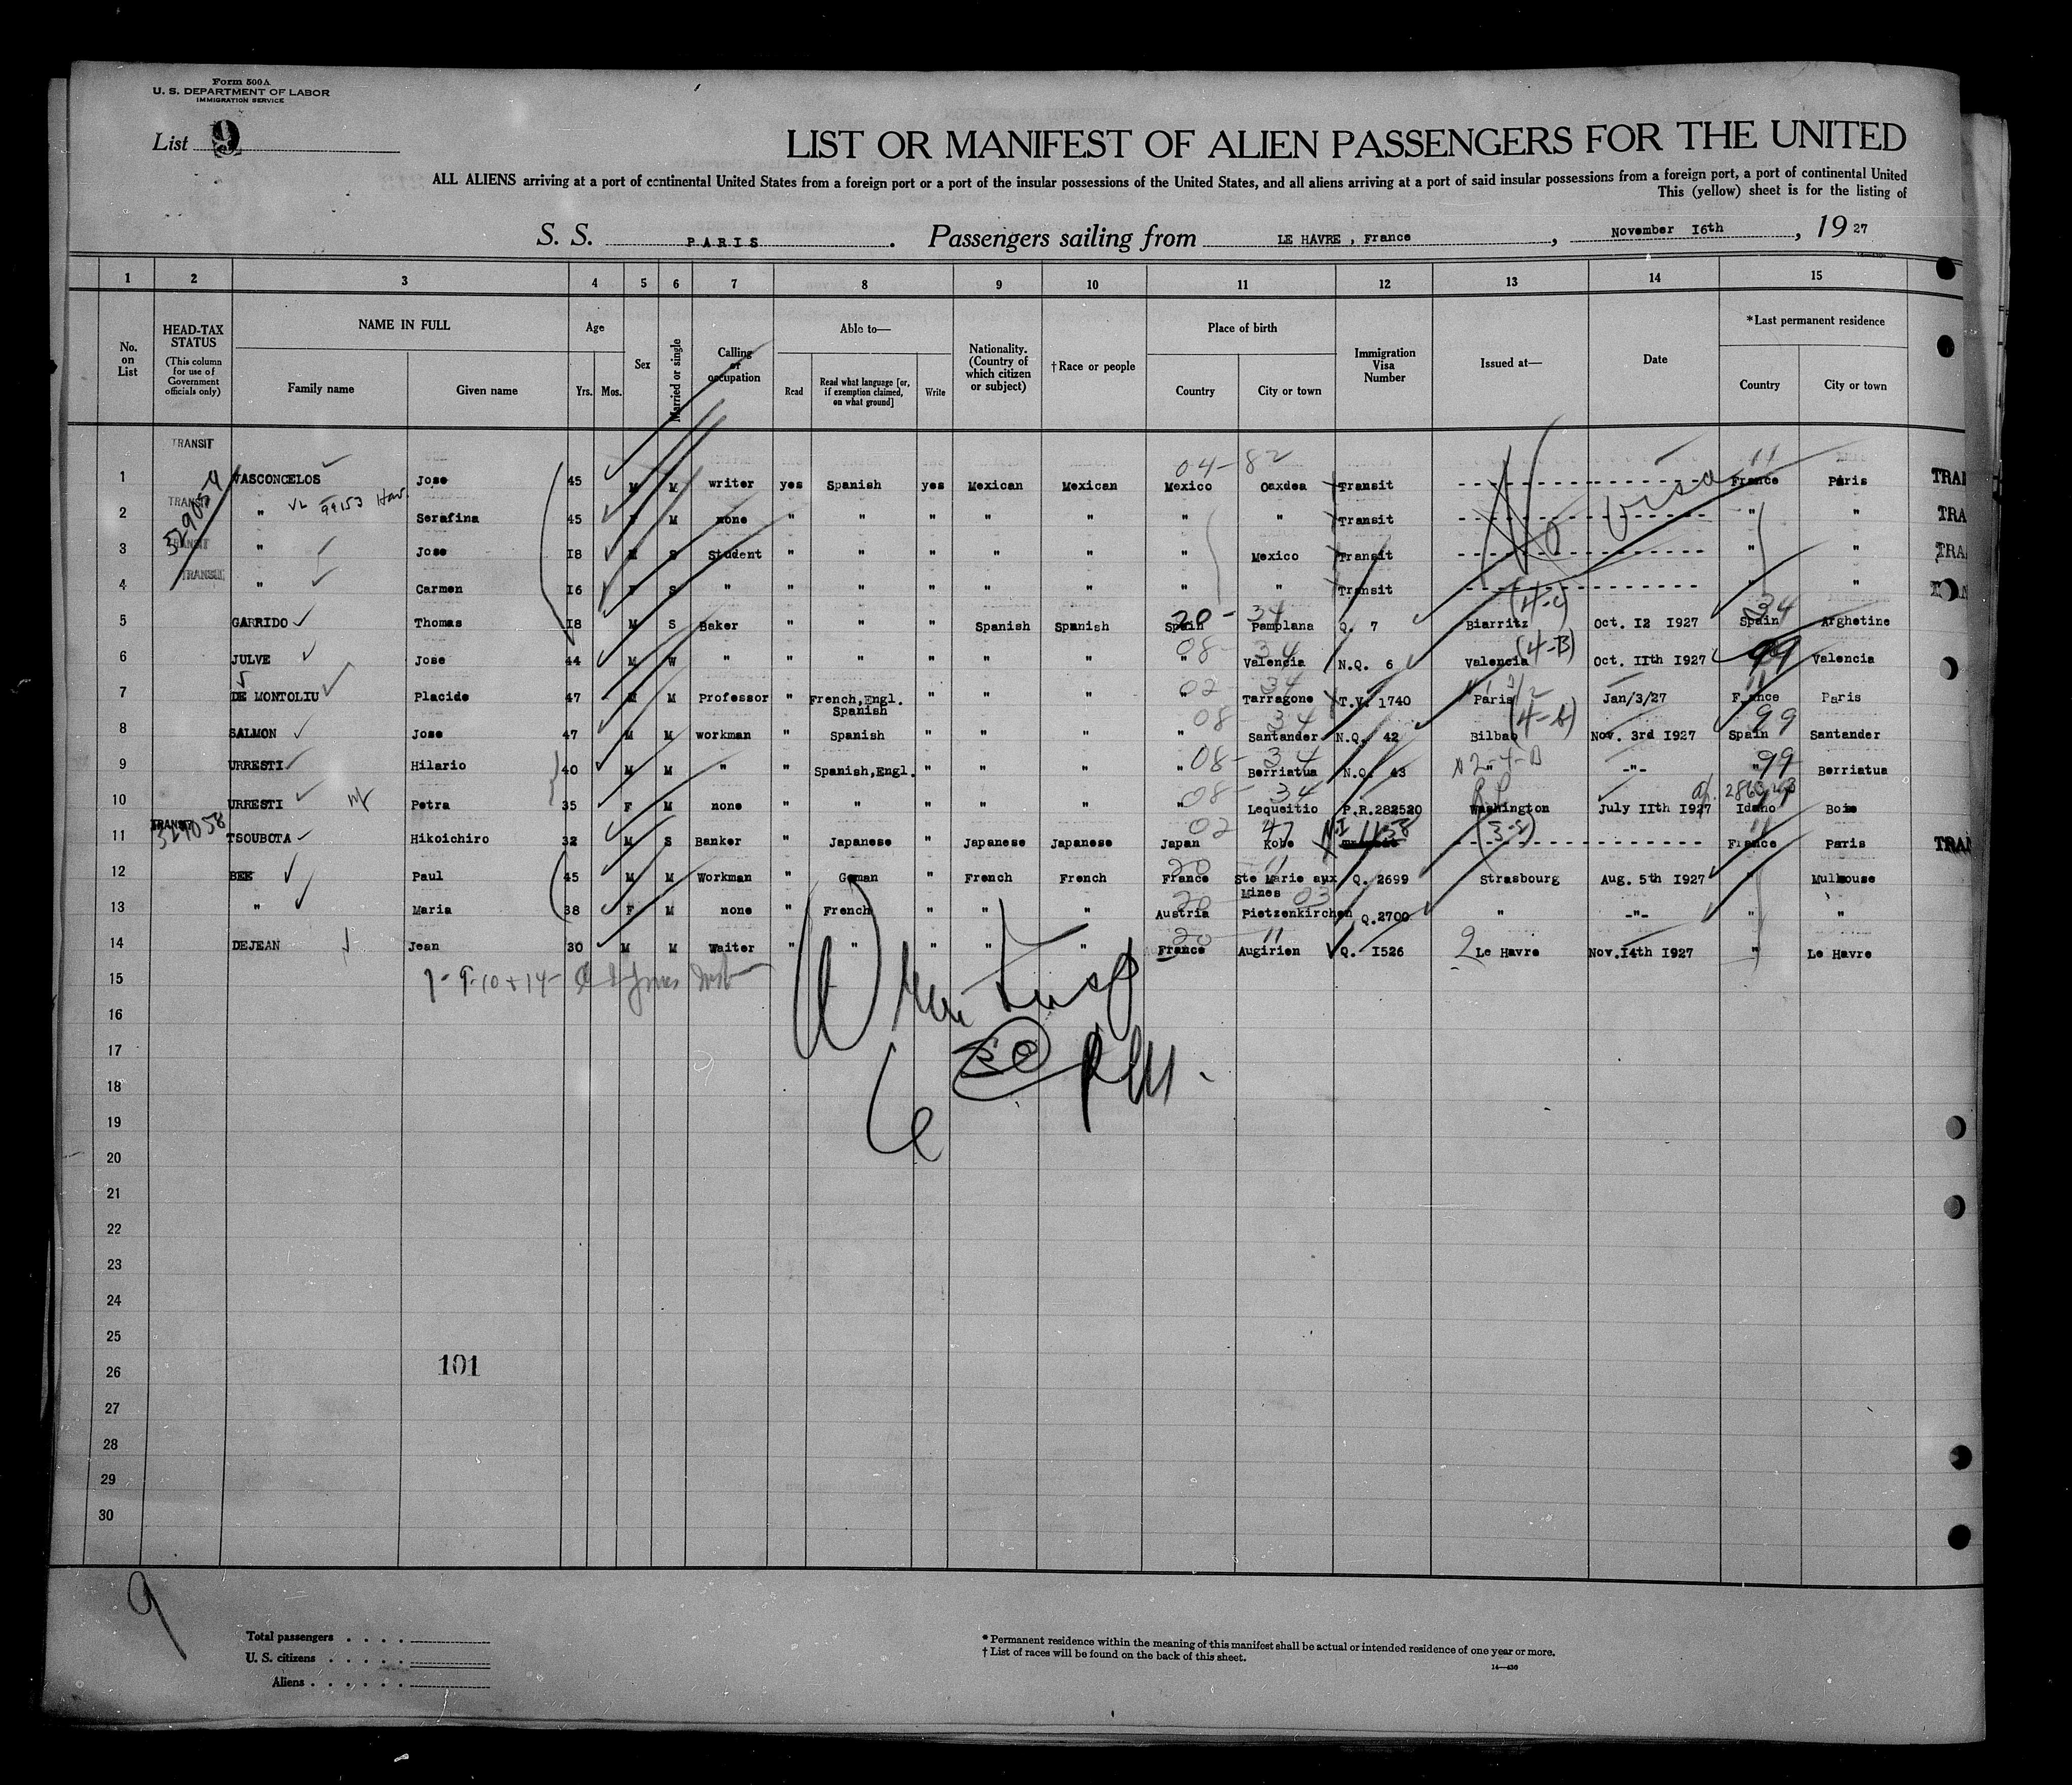 Form 500A
U. S. DEPARTMENT OF LABOR
IMMIGRATION SERVICE
List 9
LIST OR MANIFEST OF ALIEN PASSENGERS FOR THE UNITED
ALL ALIENS arriving at a port of continental United States from a foreign port or a port of the insular possessions of the United States, and all aliens arriving at a port of said insular possessions from a foreign port, a port of continental United
This (yellow) sheet is for the listing of
S. S. PARIS . Passengers sailing from LE HAVRE , France , November I6th , 19 27
1 2 3 4 5 6 7 8 9 10 11 12 13 14 15
No. on List
HEAD-TAX STATUS
(This column for use of Government officials only)
NAME IN FULL
Family name Given name
Age
Yrs. Mos.
Sex
Married or single
Calling or occupation
Able to—
Read
Read what language [or, if exemption claimed, on what ground]
Write
Nationality. (Country of which citizen or subject)
†Race or people
Place of birth
Country City or town
Immigration Visa Number
Issued at—
Date
*Last permanent residence
Country City or town
TRANSIT
04-82 11
1 VASCONCELOS Jose 45 M M writer yes Spanish yes Mexican Mexican Mexico Oaxdea Transit France Paris TRA
TRANSIT 329054 99153 No visa
2 " Serafina 45 F M none " " " " " " " Transit " " TRA
TRANSIT
3 " Jose I8 M S Student " " " " " " Mexico Transit " " TRA
TRANSIT
4 " Carmen I6 F S " " " " " " " " Transit " "
20-34 (4-C) 34
5 GARRIDO Thomas I8 M S Baker " " " Spanish Spanish Spain Pamplana Q. 7 Biarritz Oct. I2 I927 Spain Arghetine
08-34 (4-B) 99
6 JULVE Jose 44 M W " " " " " " " Valencia N.Q. 6 Valencia Oct. IIth I927 Valencia
02-34 11
7 DE MONTOLIU Placide 47 M M Professor " French,Engl. Spanish " " " " Tarragone T.V. 1740 Paris Jan/3/27 France Paris
08-34 99
8 SALMON Jose 47 M M workman " Spanish " " " " Santander N.Q. 42 Bilbao Nov. 3rd I927 Spain Santander
08-34 99
9 URRESTI Hilario 40 M M " " Spanish,Engl. " " " " Berriatua N.Q. 43 " -"- " Berriatua
08-34
10 URRESTI Petra 35 F M none " " " " " " Lequeitio P.R.282520 Washington July IIth I927 Idaho Boie
TRANSIT 329058 02 47 1138 11
11 TSOUBOTA Hikoichiro 32 M S Banker " Japanese " Japanese Japanese Japan Kobe France Paris TRAN
20 11
12 BEK Paul 45 M M Workman " Geman " French French France Ste Marie aux Mines Q. 2699 Strasbourg Aug. 5th I927 " Mulhouse
20 03
13 " Maria 38 F M none " French " " " Austria Pietzenkirchen Q.2700 " -"- " "
20 11
14 DEJEAN Jean 30 M M Waiter " " " " " France Augirien Q. I526 Le Havre Nov.I4th I927 " Le Havre
15
16
17
18
19
20
21
22
23
24
25
26 101
27
28
29
30
9
Total passengers . . . .
U. S. citizens . . . . .
Aliens . . . . . .
* Permanent residence within the meaning of this manifest shall be actual or intended residence of one year or more.
† List of races will be found on the back of this sheet.
14—430